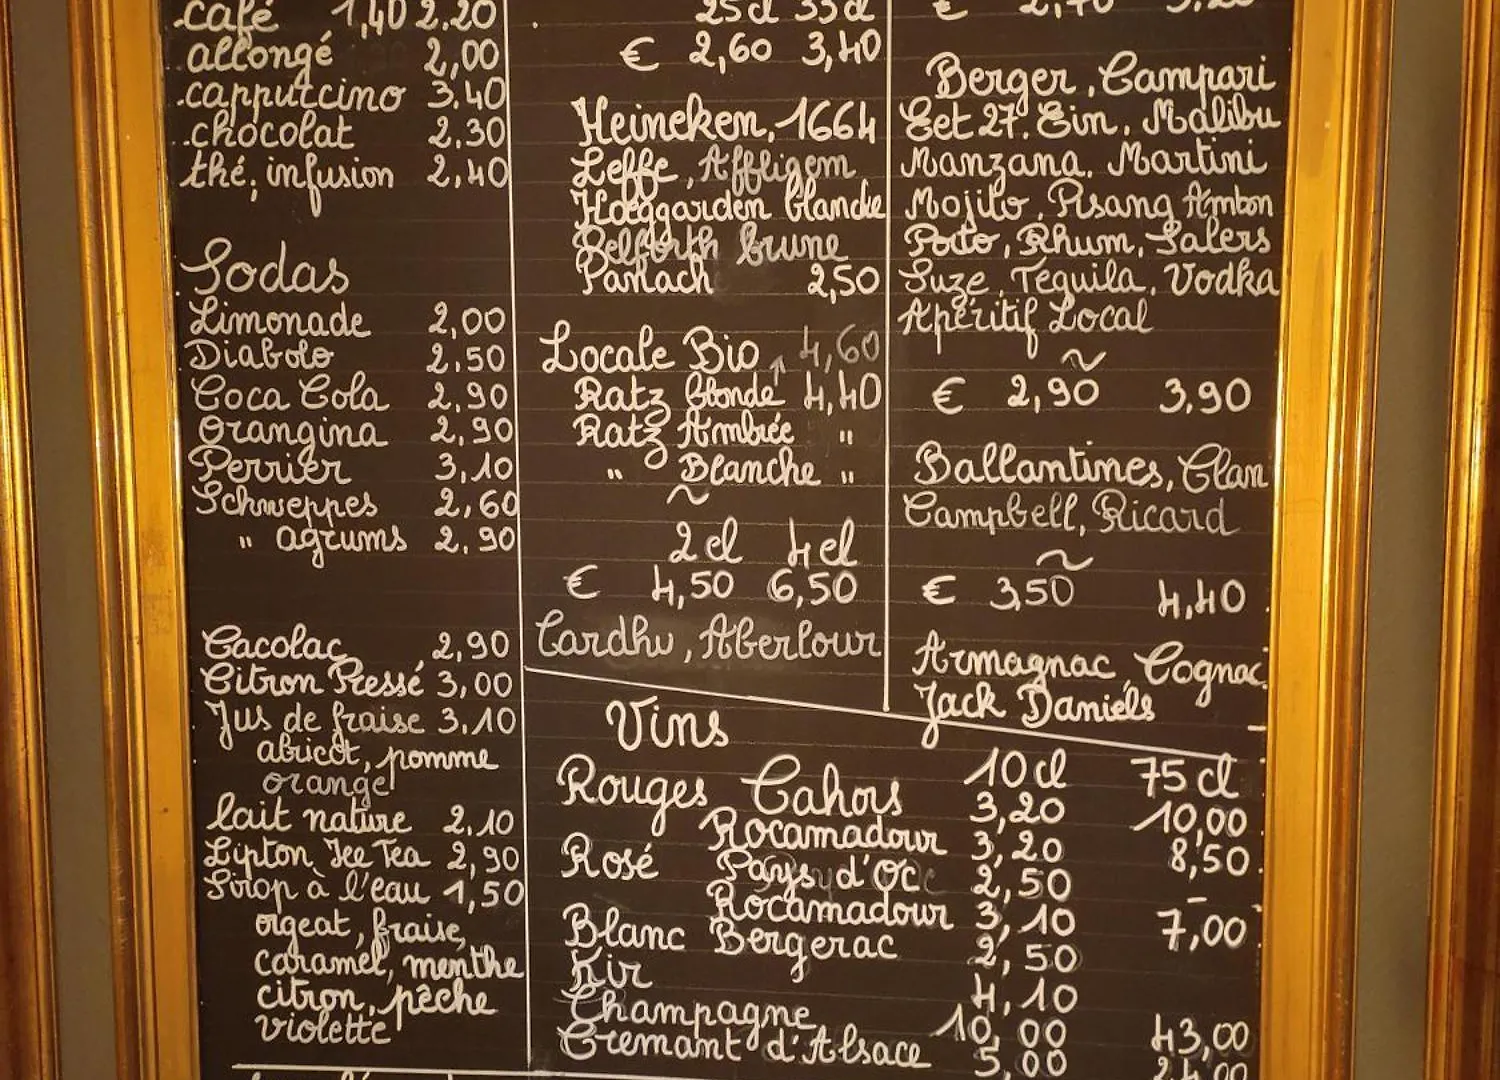 café 1,40 2.20
allongé 2,00
cappuccino 3.40
chocolat 2.30
thé, infusion 2,40
Sodas
Limonade 2,00
Diabolo 2.50
Coca Cola 2.90
Orangina 2.90
Perrier 3,10
Schweppes 2,60
" agrums 2.90
Cacolac 2,90
Citron Pressé 3,00
Jus de fraise 3,10
abricot, pomme
orange
lait nature 2,10
Lipton Ice Tea 2,90
Sirop à l'eau 1,50
orgeat, fraise,
caramel, menthe
citron, pêche
violette
25cl 33cl
€ 2,60 3,40
Heineken, 1664
Leffe, Affligem
Hoeggarden blanche
Belforth brune
Panach 2,50
Locale Bio 4,60
Ratz blonde 4,40
Ratz Ambrée "
" Blanche "
~
2cl 4cl
€ 4,50 6,50
Cardhu, Aberlour
€ 2,70 3,20
Berger, Campari
Get 27. Gin. Malibu
Manzana. Martini
Mojito, Pisang Ambon
Porto, Rhum, Salers
Suze, Tequila, Vodka
Apéritif Local
~
€ 2,90 3,90
Ballantines, Clan
Campbell, Ricard
~
€ 3,50 4,40
Armagnac, Cognac
Jack Daniels
Vins
10cl 75cl
Rouges Cahors 3,20 10,00
Rocamadour 3,20 8,50
Rosé Pays d'Oc 2,50 -
Rocamadour 3,10 7,00
Blanc Bergerac 2,50
Kir 4,10
Champagne 10,00 43,00
Cremant d'Alsace 5,00 24,00